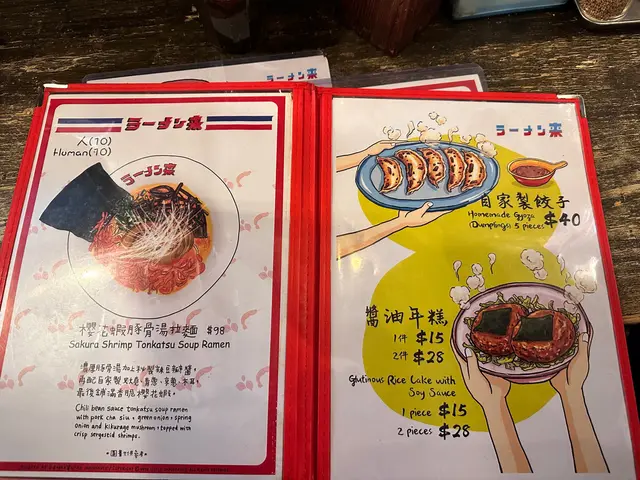 ラーメン来
ラーメン来
人(70)
Human(90)
ラーメン来
櫻花蝦豚骨湯拉麵 $98
Sakura Shrimp Tonkatsu Soup Ramen
Chili bean sauce tonkatsu soup ramen
with pork cha siu, green onion, spring
onion and kikurage mushroom, topped with
crisp sergestid shrimps.
ラーメン来
自家製餃子
Homemade Gyoza
(Dumplings) 5 pieces $40
醬油年糕
1件 $15
2件 $28
Glutinous Rice Cake with
Soy Sauce
1 piece $15
2 pieces $28